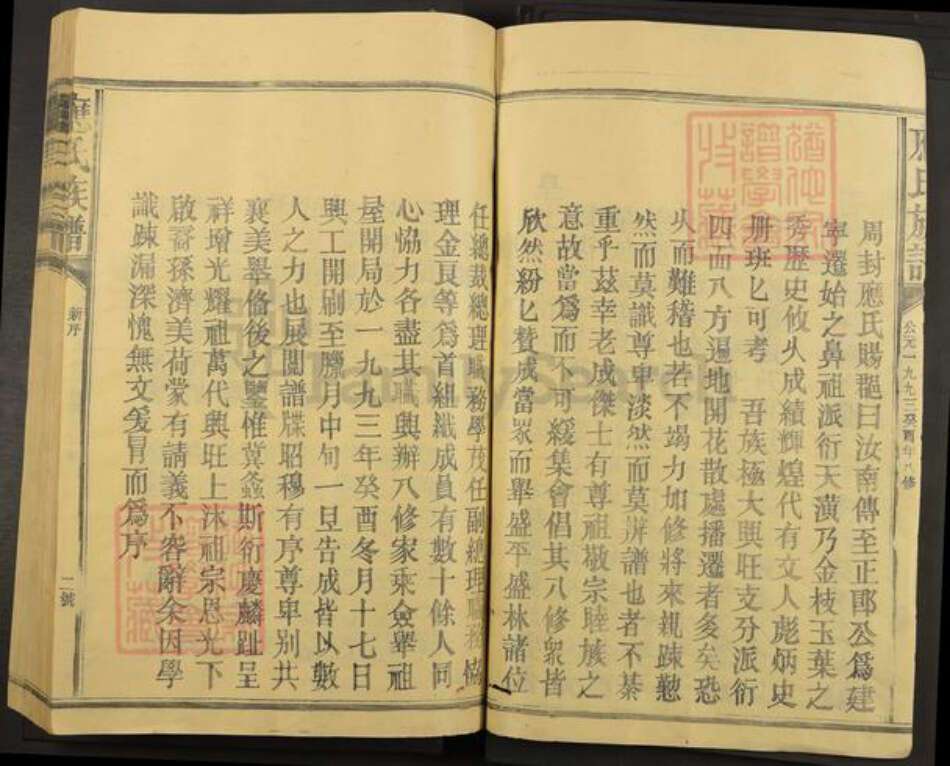 應氏族譜
公元一九九三癸酉年八修
周封應氏賜龍曰汝南傳至正郎公為建
寧遷始之鼻祖派衍天潢乃金枝玉葉之
秀歷史攸久成績輝煌代有文人彪炳史
册班匕可考 吾族極大興旺支分派衍
四面八方遍地開花散處播遷者多矣恐
久而難稽也若不竭力如修將來親踈愬
然而莫識尊卑淡然而莫辨譜也者不綦
重乎茲幸老成傑士有尊祖敬宗睦族之
意故當為而不可緩集會倡其八修衆皆
欣然紛匕贊成當眾而舉盛平盛林諸位
任總裁總理職務學茂任副總理職務
理金良等為首組織成員有數十餘人同
心恊力各盡其職興辦八修家乘僉舉祖
屋開局於一九九三年癸酉冬月十七日
興工開刷至臘月中旬一旦告成皆以數
人之力也展閱譜牒昭穆有序尊卑別共
襄美舉俻後之鑒惟冀螽斯衍慶麟趾呈
祥增光耀祖萬代興旺上沐祖宗恩光下
啟裔孫濟美荷蒙有請義不容辭余因學
識踈漏深愧無文爰冒而為序
應氏族譜
新序
二號